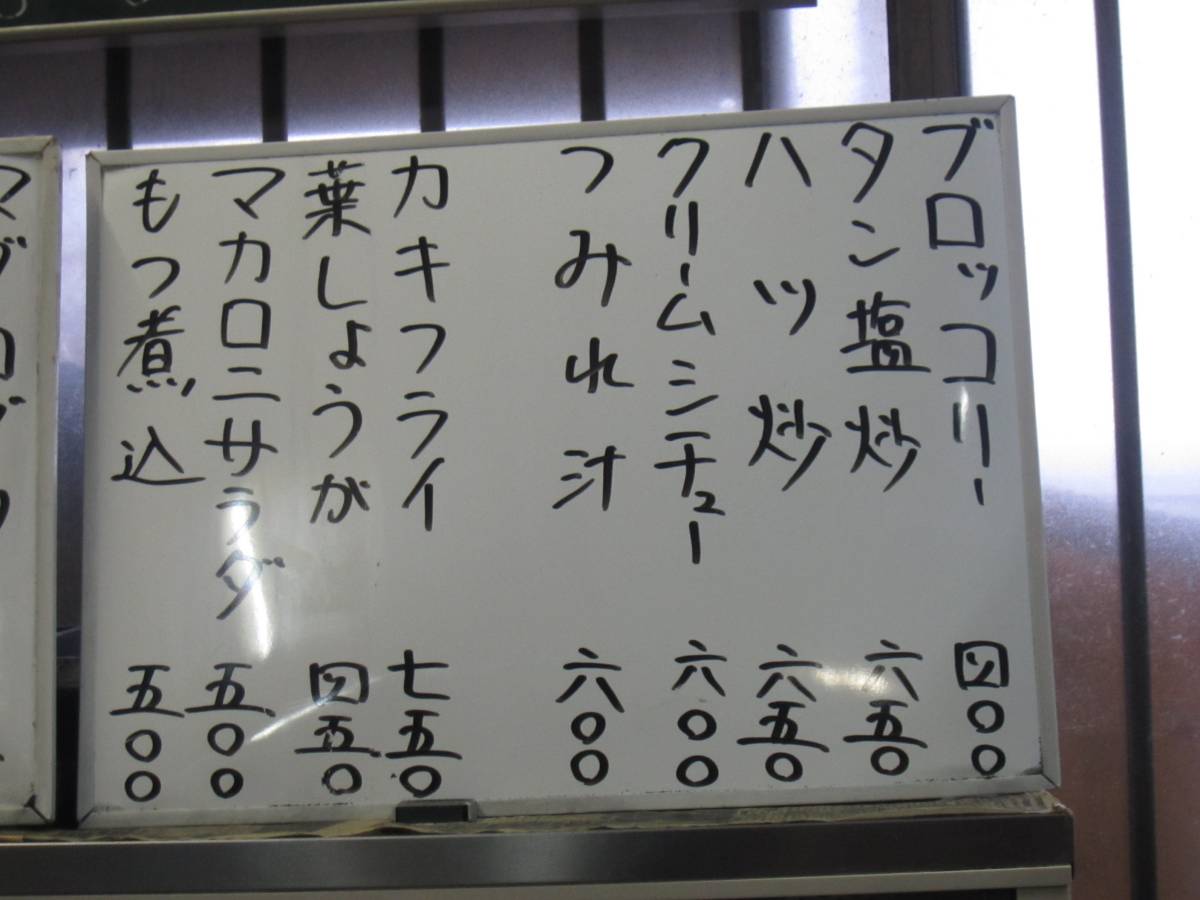 ブロッコリー 四〇〇
タン塩炒 六五〇
ハツ炒 六五〇
クリームシチュー 六〇〇
つみれ汁 六〇〇
カキフライ 七五〇
葉しょうが 四五〇
マカロニサラダ 五〇〇
もつ煮込 五〇〇